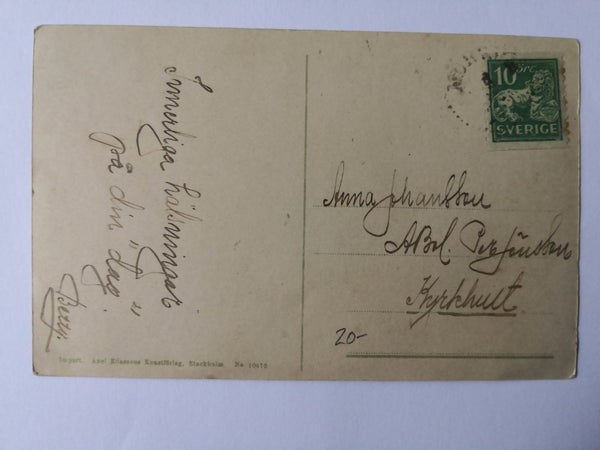 Innerliga hälsningar
på din "dag"
Berry.
Import. Axel Eliassons Konstförlag, Stockholm. No 10470
10 ÖRE
SVERIGE
Anna Johansson
Kyrkhult
20-